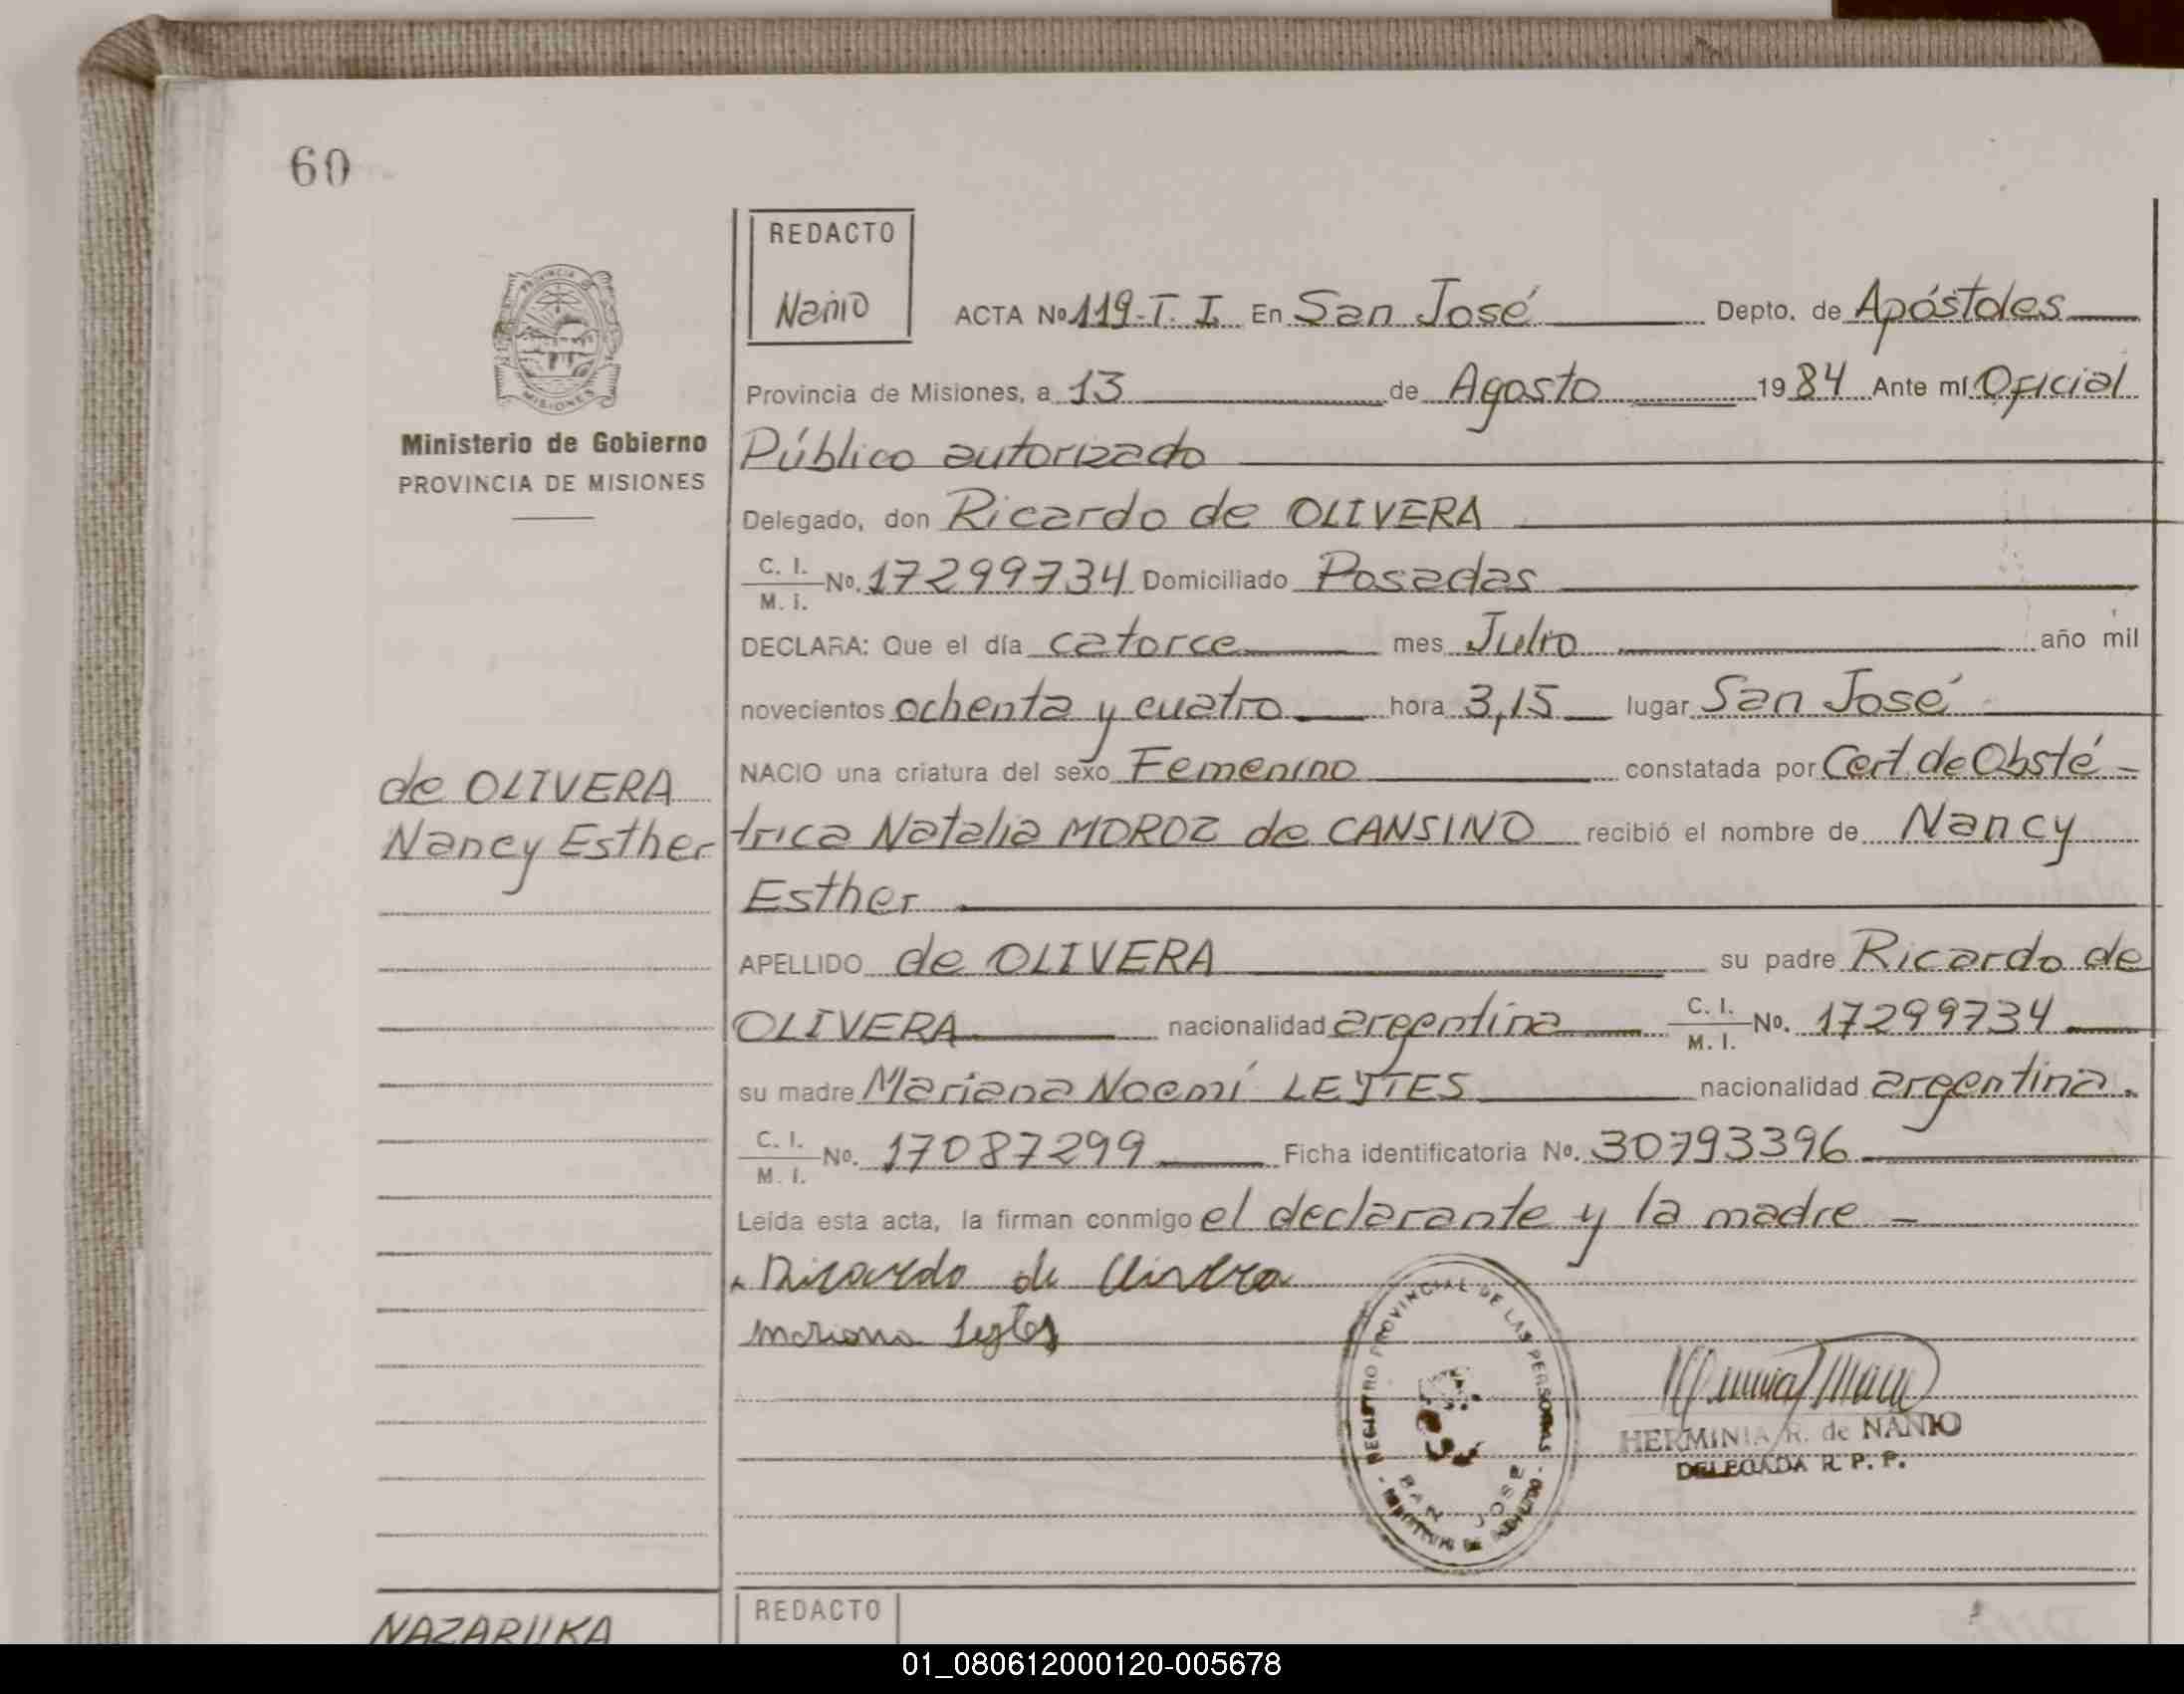 60
REDACTO
Nanio
ACTA Nº 119-T. I. En San José Depto. de Apóstoles
Provincia de Misiones, a 13 de Agosto 1984 Ante mí Oficial
Ministerio de Gobierno
PROVINCIA DE MISIONES
Público autorizado
Delegado, don Ricardo de OLIVERA
C. I.
M. I.
No. 17299734 Domiciliado Posadas
DECLARA: Que el día catorce mes Julio año mil
novecientos ochenta y cuatro hora 3,15 lugar San José
NACIO una criatura del sexo Femenino constatada por Cert. de Obsté-
de OLIVERA
Nancy Esther
trica Natalia MOROZ de CANSINO recibió el nombre de Nancy
Esther
APELLIDO de OLIVERA su padre Ricardo de
OLIVERA nacionalidad argentina C. I. M. I. No. 17299734
su madre Mariana Noemí LEYTES nacionalidad argentina.
C. I.
M. I.
No. 17087299 Ficha identificatoria No. 30793396
Leída esta acta, la firman conmigo el declarante y la madre -
Ricardo de Olivera
Mariana Leytes
REGISTRO PROVINCIAL DE LAS PERSONAS
SAN JOSE
HERMINIA R. de NANIO
DELEGADA R. P. P.
NAZARUKA
REDACTO
01_080612000120-005678